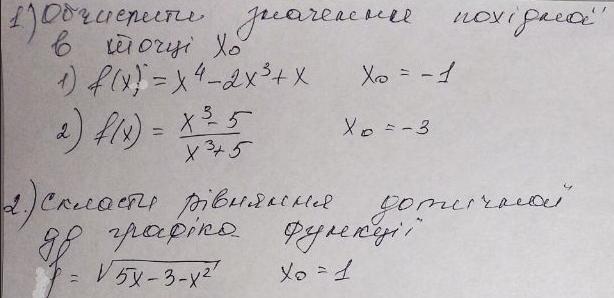 1) Обчислити значення похідної
в точці x₀
1) f(x) = x⁴ - 2x³ + x x₀ = -1
2) f(x) = (x³ - 5)/(x³ + 5) x₀ = -3
2.) Скласти рівняння дотичної
до графіка функції
y = √(5x - 3 - x²) x₀ = 1